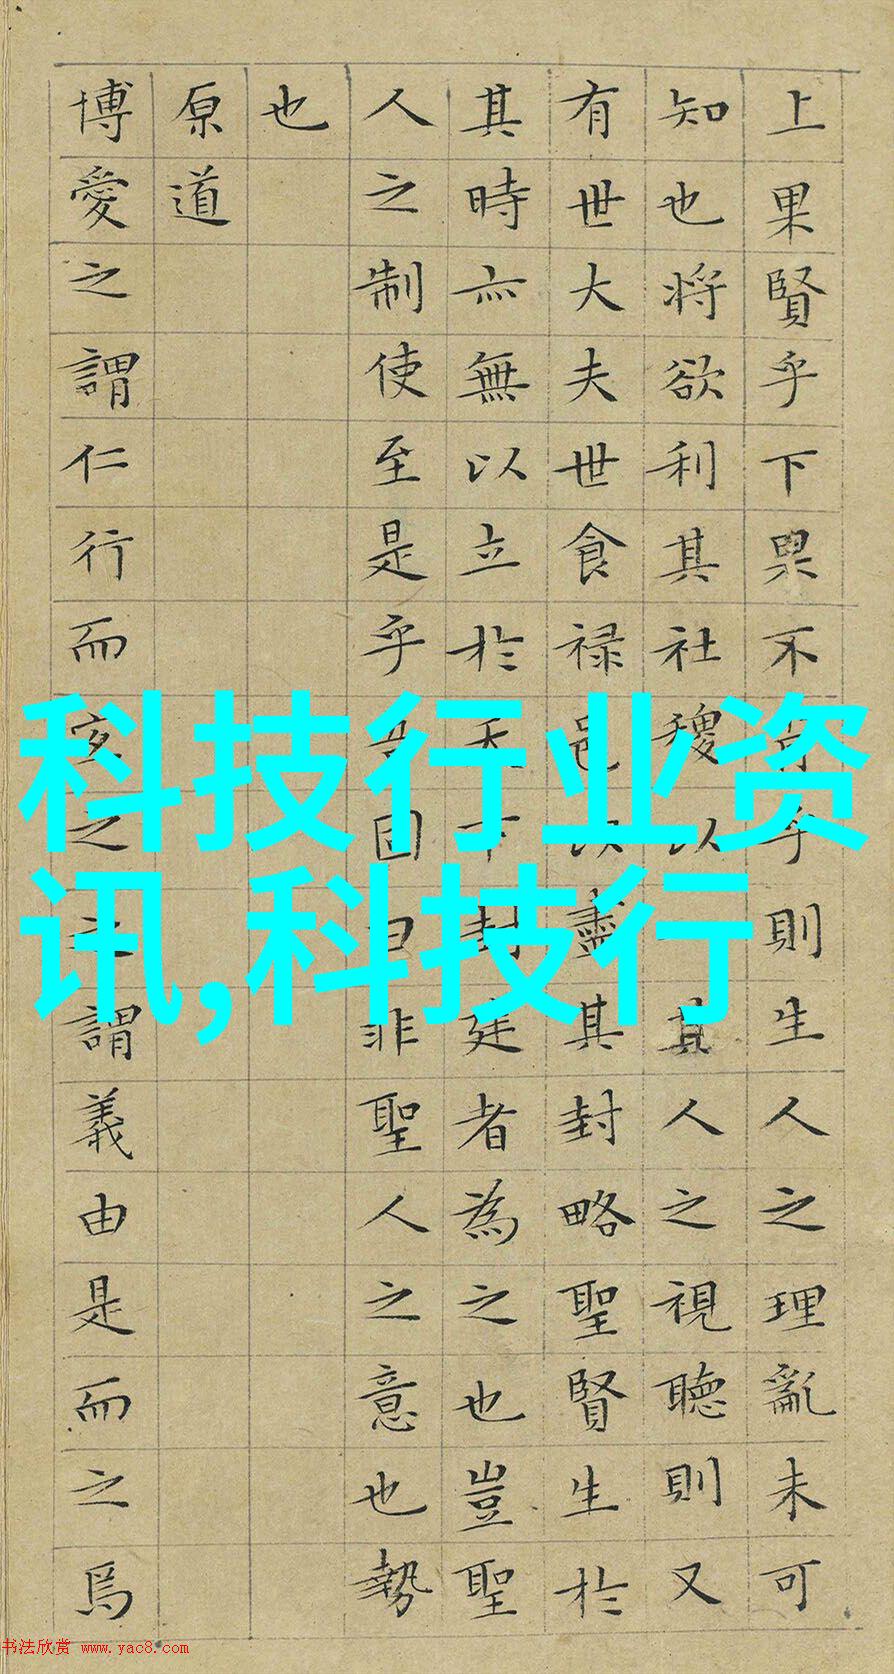 上果賢乎下果不肖乎則生人之理亂未可
知也將欲利其社稷以一其人之視聽則又
有世大夫世食禄邑以盡其封略聖賢生於
其時亦無以立於天下封建者為之也豈聖
人之制使至是乎吾固曰非聖人之意也勢
也
原道
博愛之謂仁行而宜之之謂義由是而之焉
科技行业资
讯,科技行
书法欣赏 www.yac8.com